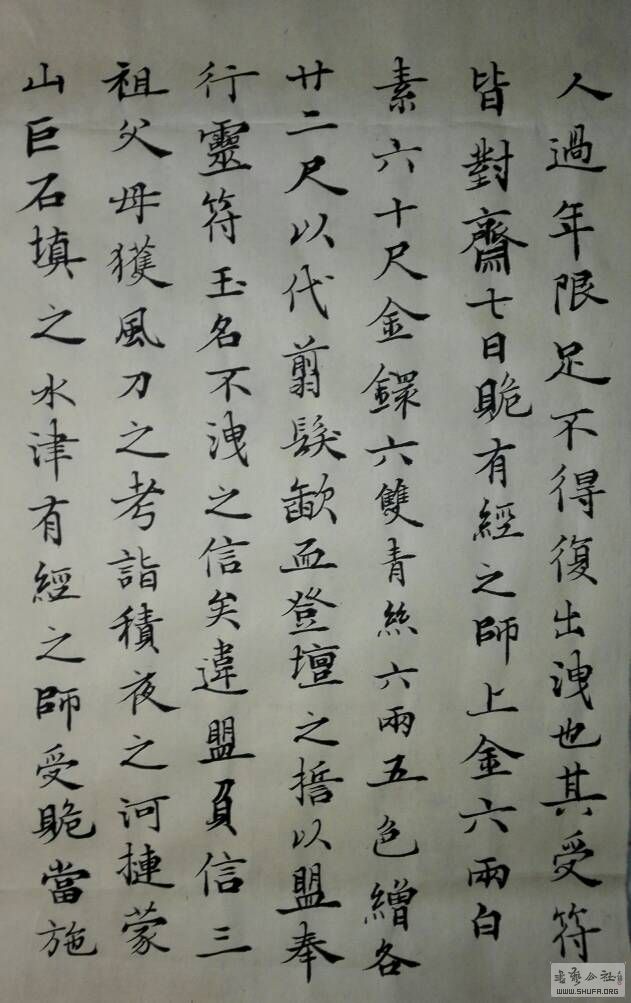 人過年限足不得復出洩也其受符
皆對齋七日賍有經之師上金六兩白
素六十尺金鐶六雙青絲六兩五色繒各
廿二尺以代翦髮歃血登壇之誓以盟奉
行靈符玉名不洩之信矣違盟負信三
祖父母獲風刀之考詣積夜之河摙蒙
山巨石填之水津有經之師受賍當施
书艺公社
WWW.SHUFA.ORG